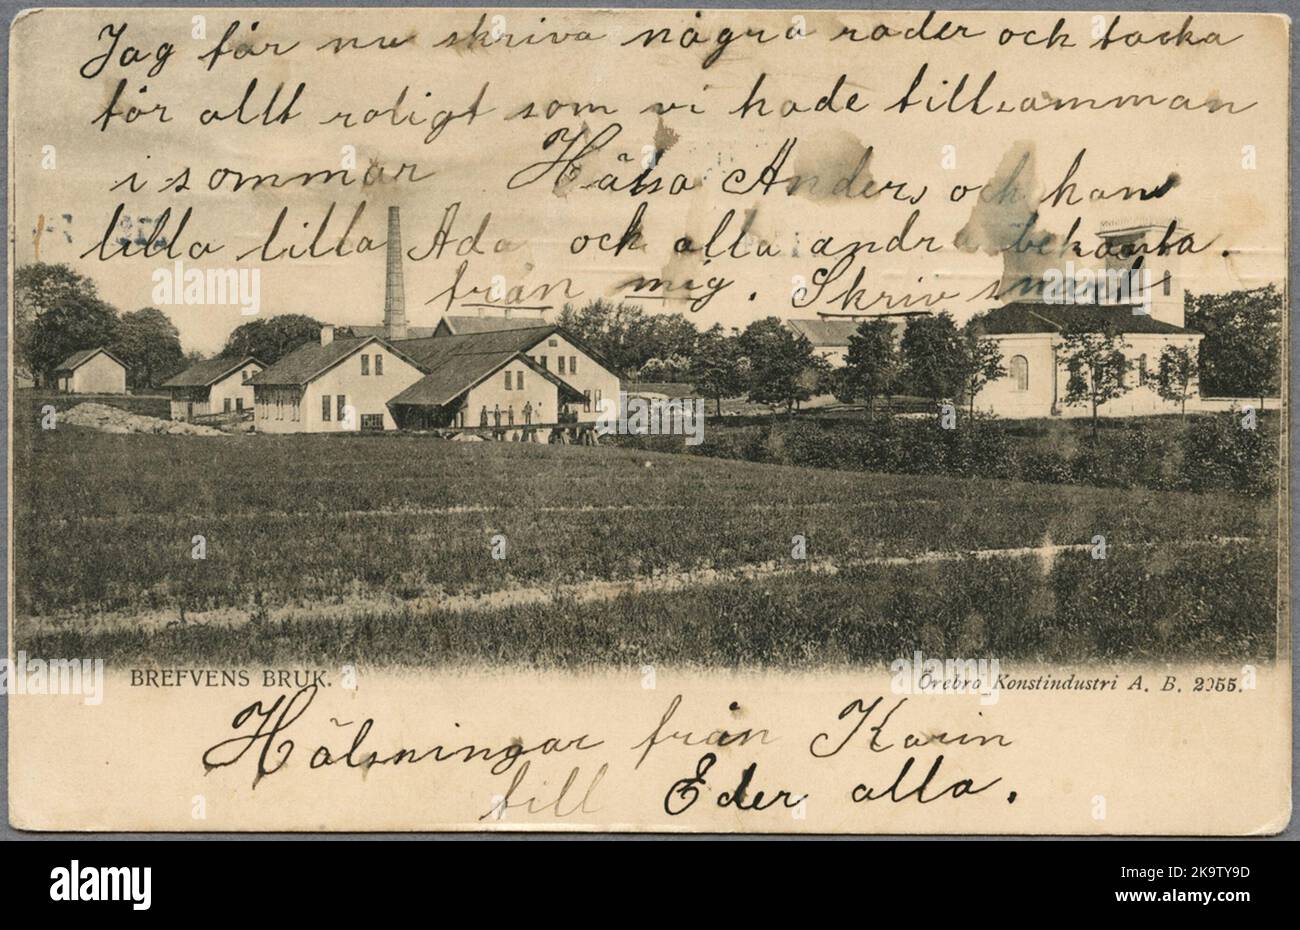 Jag får nu skriva några rader och tacka
för allt roligt som vi hade tillsamman
i sommar Hälsa Anders och hans
lilla lilla Ada och alla andra bekanta.
från mig. Skriv snart
BREFVENS BRUK.
Örebro Konstindustri A. B. 2955.
Hälsningar från Karin
till Eder alla.
alamy
Image ID: 2K9TY9D
www.alamy.com